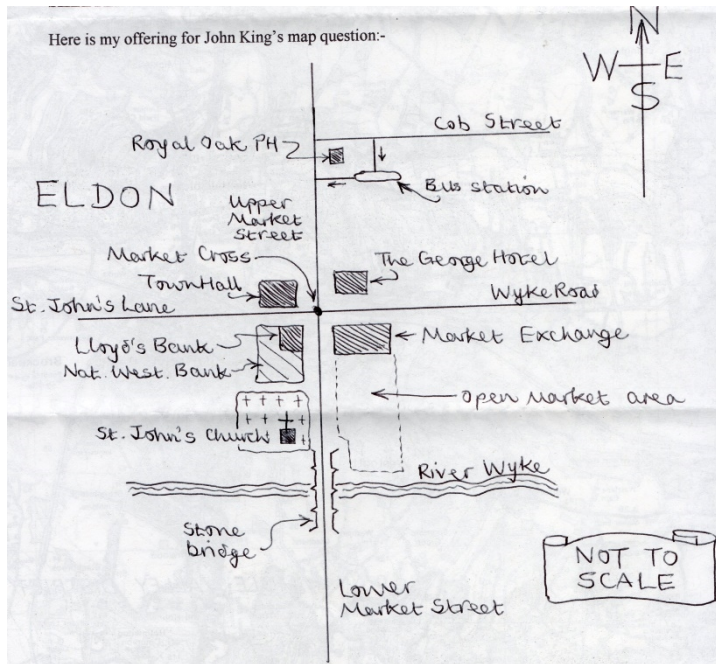 Here is my offering for John King's map question:-
N
W E
S
Cob Street
Royal Oak PH
Bus station
ELDON
Upper
Market
Street
Market Cross
The George Hotel
Town Hall
St. John's Lane
Wyke Road
Lloyd's Bank
Market Exchange
Nat. West. Bank
Open Market area
St. John's Church
River Wyke
Stone
bridge
NOT TO
SCALE
Lower
Market Street